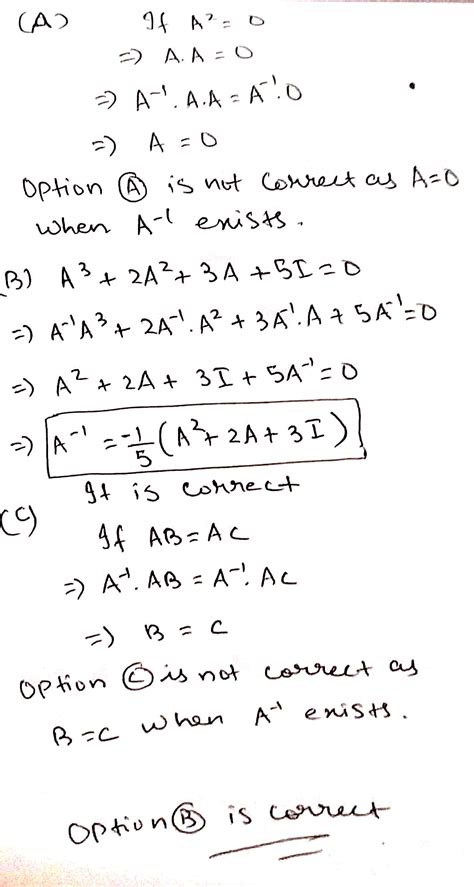 (A) If A² = 0
⇒ A.A = 0
⇒ A⁻¹.A.A = A⁻¹.0
⇒ A = 0
Option Ⓐ is not correct as A=0
when A⁻¹ exists.
(B) A³ + 2A² + 3A + 5I = 0
⇒ A⁻¹A³ + 2A⁻¹.A² + 3A⁻¹.A + 5A⁻¹=0
⇒ A² + 2A + 3I + 5A⁻¹ = 0
⇒ A⁻¹ = -1/5 (A² + 2A + 3I)
It is correct
(C)
If AB = AC
⇒ A⁻¹.AB = A⁻¹.AC
⇒ B = C
Option Ⓒ is not correct as
B=C when A⁻¹ exists.
Option Ⓑ is correct